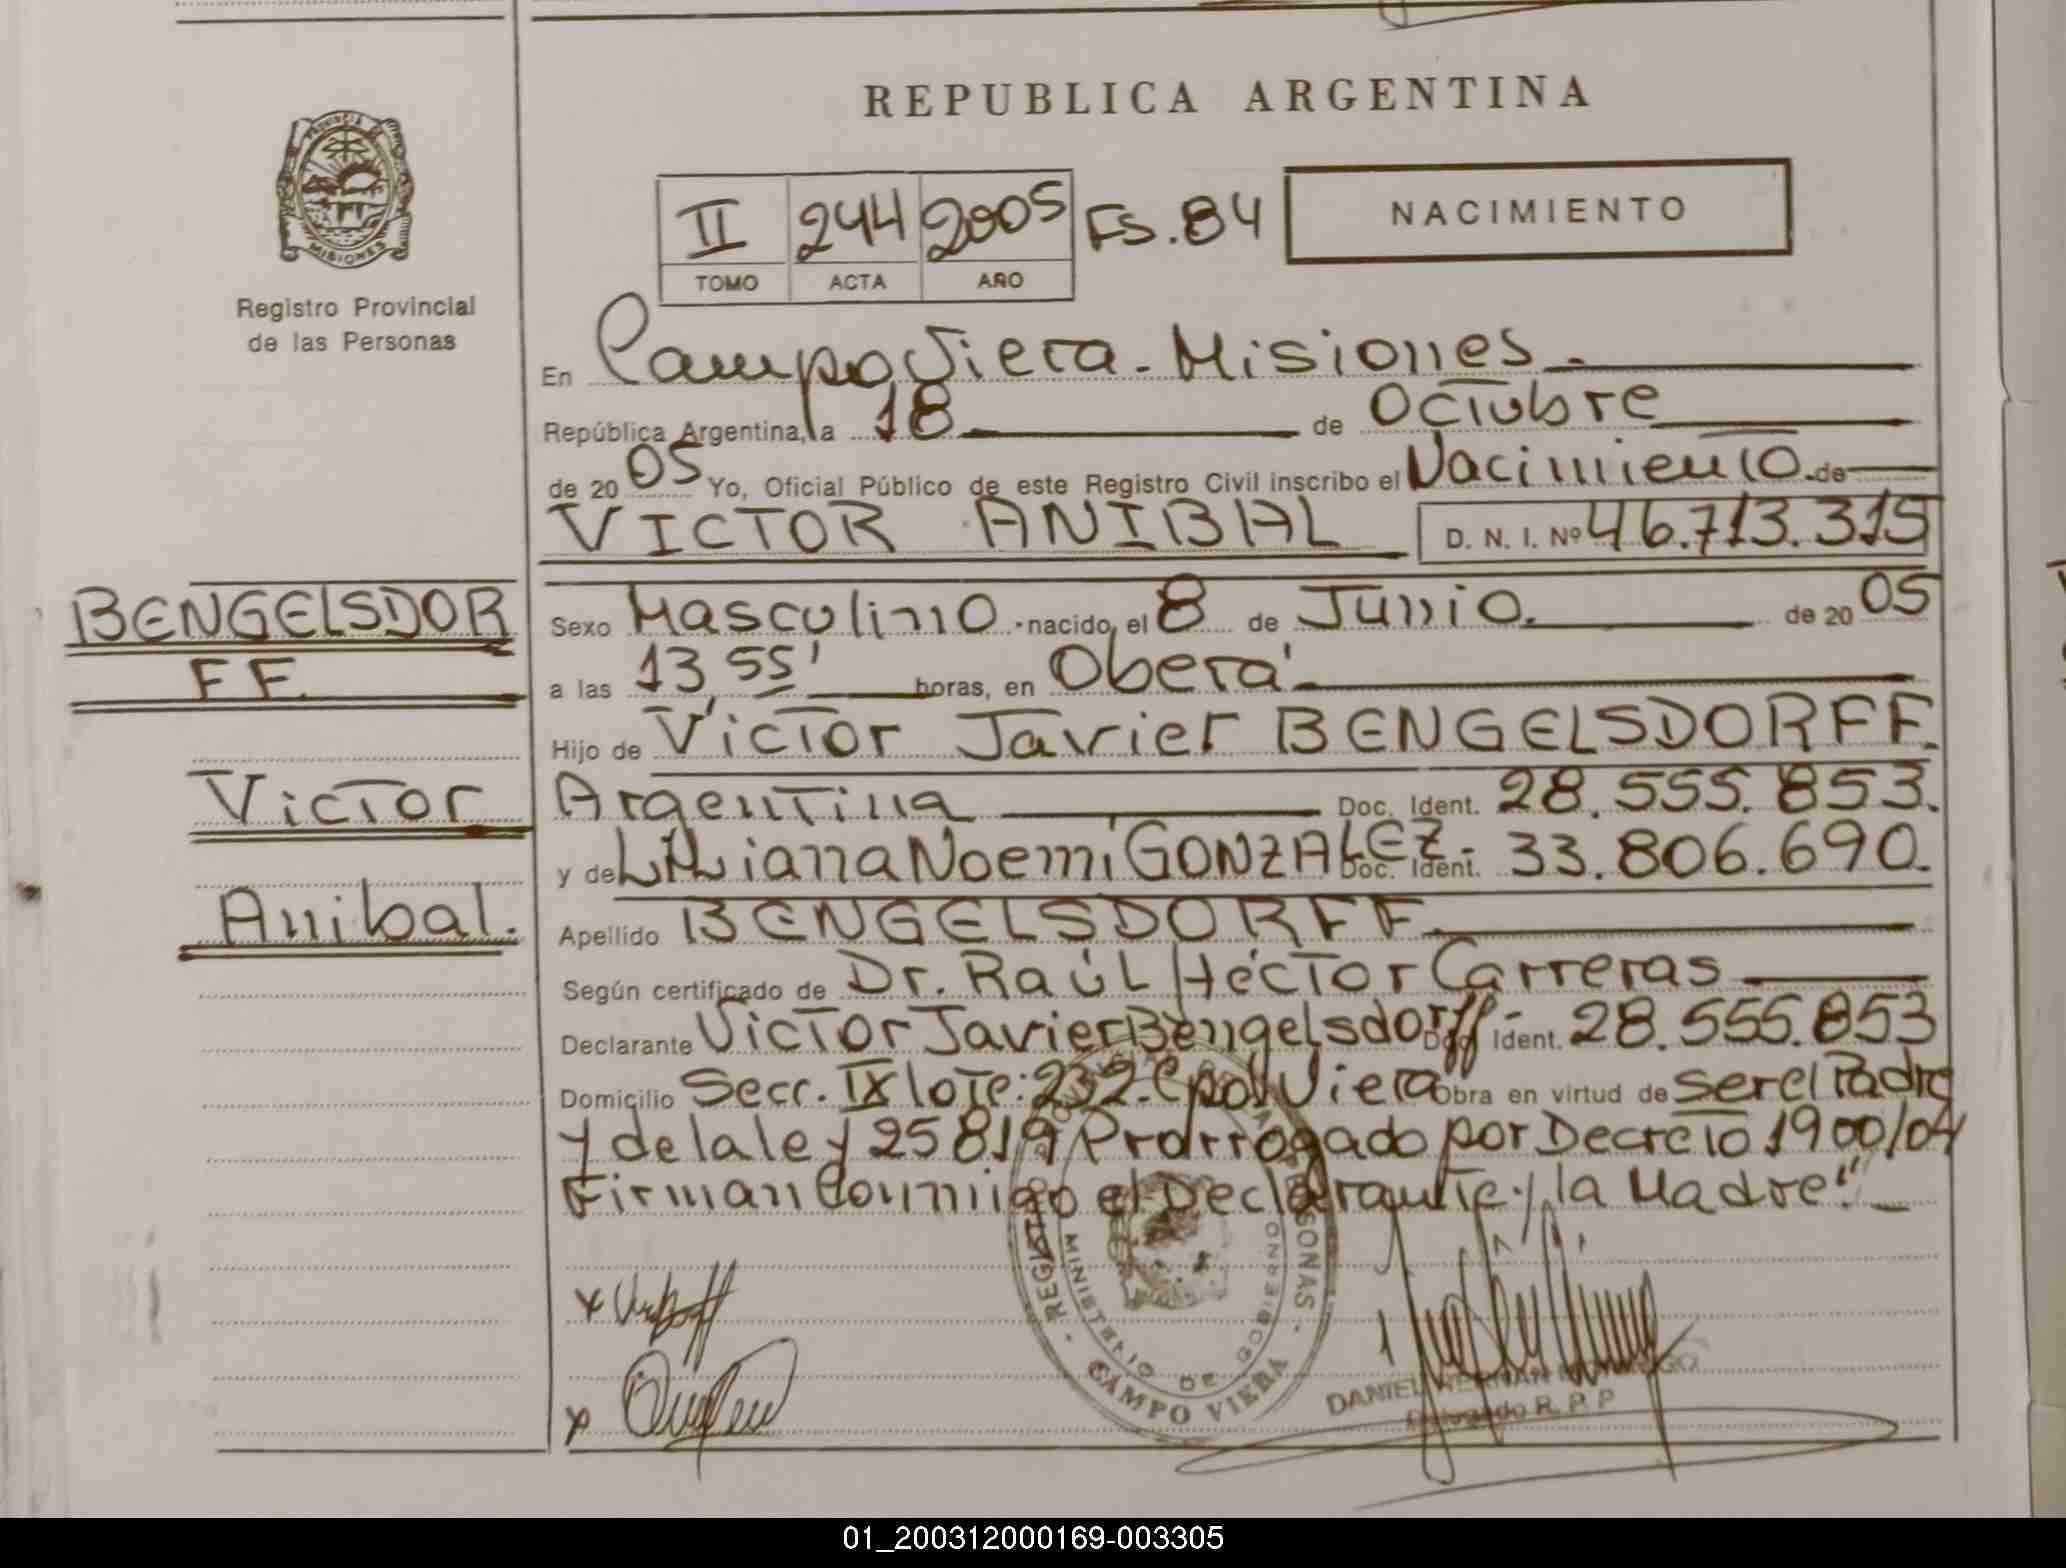 REPUBLICA ARGENTINA
PROVINCIA DE
MISIONES
Registro Provincial
de las Personas
II 244 2005 FS.84
TOMO ACTA AÑO
NACIMIENTO
En Campo Viera - Misiones.
República Argentina, a 18 de Octubre
de 2005 Yo, Oficial Público de este Registro Civil inscribo el Nacimiento de
VICTOR ANIBAL D. N. I. Nº 46.713.315
BENGELSDOR
FF.
Victor
Anibal.
Sexo Masculino nacido el 8 de Junio. de 2005
a las 13,55' horas, en Oberá
Hijo de Victor Javier BENGELSDORFF.
Argentina Doc. Ident. 28.555.853.
y de Liliana Noemi GONZALEZ.- Doc. Ident. 33.806.690.
Apellido BENGELSDORFF.
Según certificado de Dr. Raúl Héctor Carreras
Declarante Victor Javier Bengelsdorff - Doc. Ident. 28.555.853
Domicilio Secc. IX lote: 232. Cpo Viera Obra en virtud de ser el Padre
y de la ley 25819 Prorrogado por Decreto 1900/04
Firman Conmigo el Declarante y la Madre."
REGISTRO PROVINCIAL DE LAS PERSONAS
MINISTERIO DE GOBIERNO
CAMPO VIERA
DANIEL HERNAN
Delegado R. P. P
01_200312000169-003305